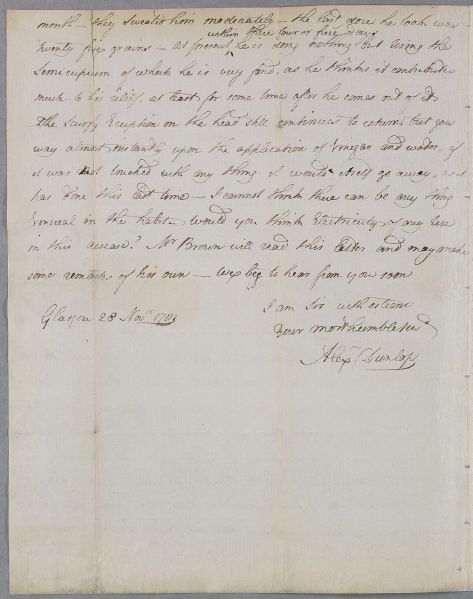 month – they sweated him moderately – the last dose he took, was
within these four or five days
twenty five grains – at present he is doing nothing but using the
Semicupium of which he is very fond, as he thinks it contributes
much to his relief, at least for some time after he comes out of it.
The Scurfy Eruption on the head still continues to return, but goes
way almost instantly upon the application of Vinegar and water, if
it was not touched with any thing it would itself go away, as it
has done this last time – I cannot think there can be any thing
Venereal in the habit – would you think Electricity of any use
in this disease? Mr Brown will read this letter and may make
some remarks of his own – we beg to hear from you soon
I am Sir with esteem
Glasgow 28 Novr.
your most humble servt
Alexr Dunlop